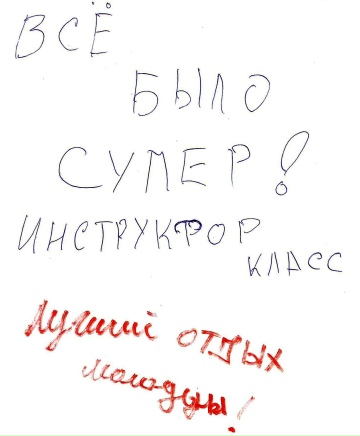 ВСЁ
БЫЛО
СУПЕР!
ИНСТРУКТОР
КЛАСС
Лучший отдых
молодцы!